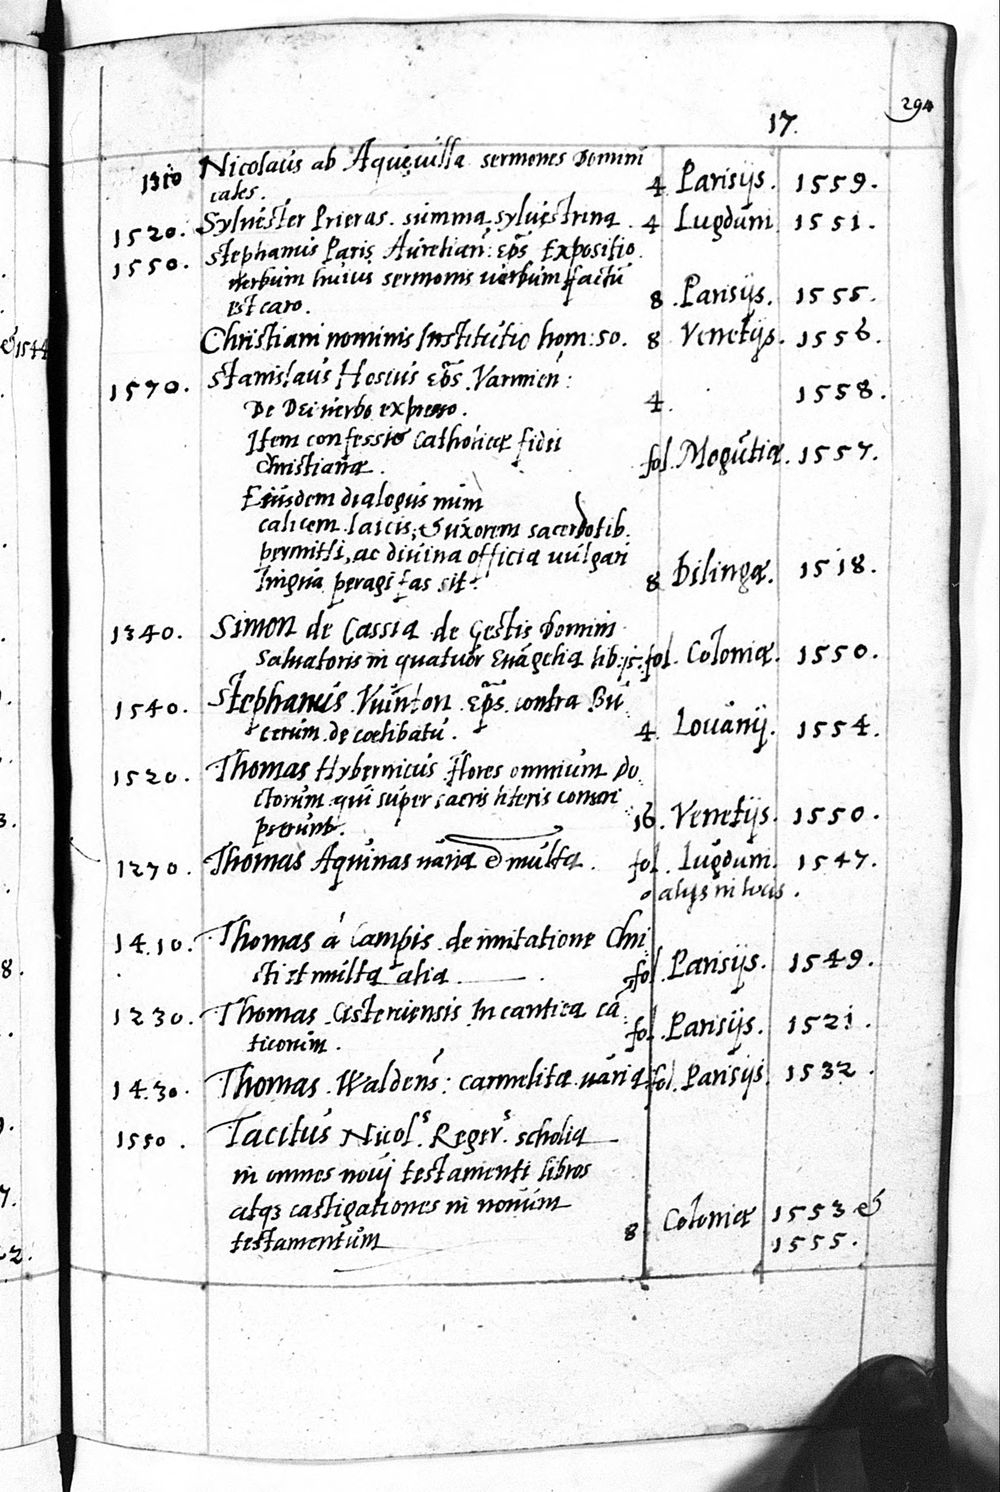 294
17.
1310 Nicolaus ab Aqueuilla sermones Domini
cales. 4 Parisijs. 1559.
1520. Syluester Prieras. summa syluestrina 4 Lugduni 1551.
1550. Stephanus Paris Aurelian: eps̃ Expositio
uerbum huius sermonis uerbum factũ
est caro. 8. Parisijs. 1555.
Christiani nominis Institutio hom: 50. 8 Venetijs. 1556.
1570. Stanislaus Hosius eps̃ Varmien:
De Dei uerbo expresso. 4. 1558.
Item confessio Catholicæ fidei
Christianæ. fol. Mogũtiæ. 1557.
Eiusdem dialogus num
calicem laicis, & uxorem sacerdotib.
permitti, ac diuina officia uulgari
lingua peragi fas sit. 8 Dilingæ. 1518.
1340. Simon de Cassia de Gestis Domini
Saluatoris in quatuor Euãgelia lib. 15. fol. Coloniæ. 1550.
1540. Stephanus Vuinton eps̃ contra Bu
cerum de cœlibatu. 4 Louanij. 1554.
1520. Thomas Hybernicus flores omnium do
ctorum qui super sacris literis
16. Venetijs. 1550.
1270. Thomas Aquinas uaria & multa. fol. Lugduni. 1547.
alijs in locis.
1410. Thomas à Campis de imitatione Chri
sti et multa alia fol. Parisijs. 1549.
1230. Thomas Cisterciensis In cantica cã
ticorum. fol. Parisijs. 1521.
1430. Thomas Waldens: carmelita uaria fol. Parisijs. 1532.
1550. Tacitus Nicols Regers scholia
in omnes noui testamenti libros
atq3 castigationes in nouum
testamentum 8 Coloniæ 1553 &
1555.
& 1544
3.
8.
7.
2.